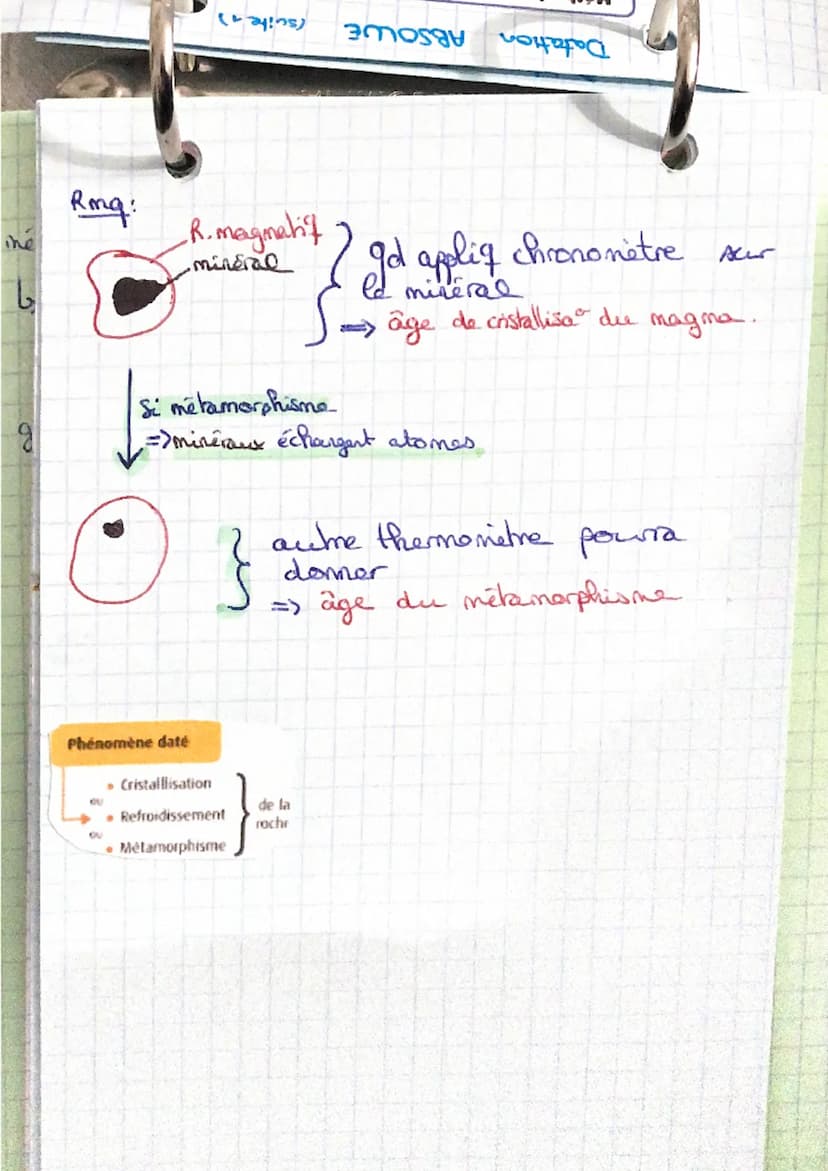 Datation ABSOLUE (suite 1)
Rmq:
R. magmatiq
minéral
qd appliq chronomètre sur
le minéral
=> âge de cristallisa° du magma.
si métamorphisme
=> minéraux échangent atomes
autre thermomètre pourra
donner
=> âge du métamorphisme
Phénomène daté
• Cristalllisation
ou
• Refroidissement
ou
• Métamorphisme
de la
rochr